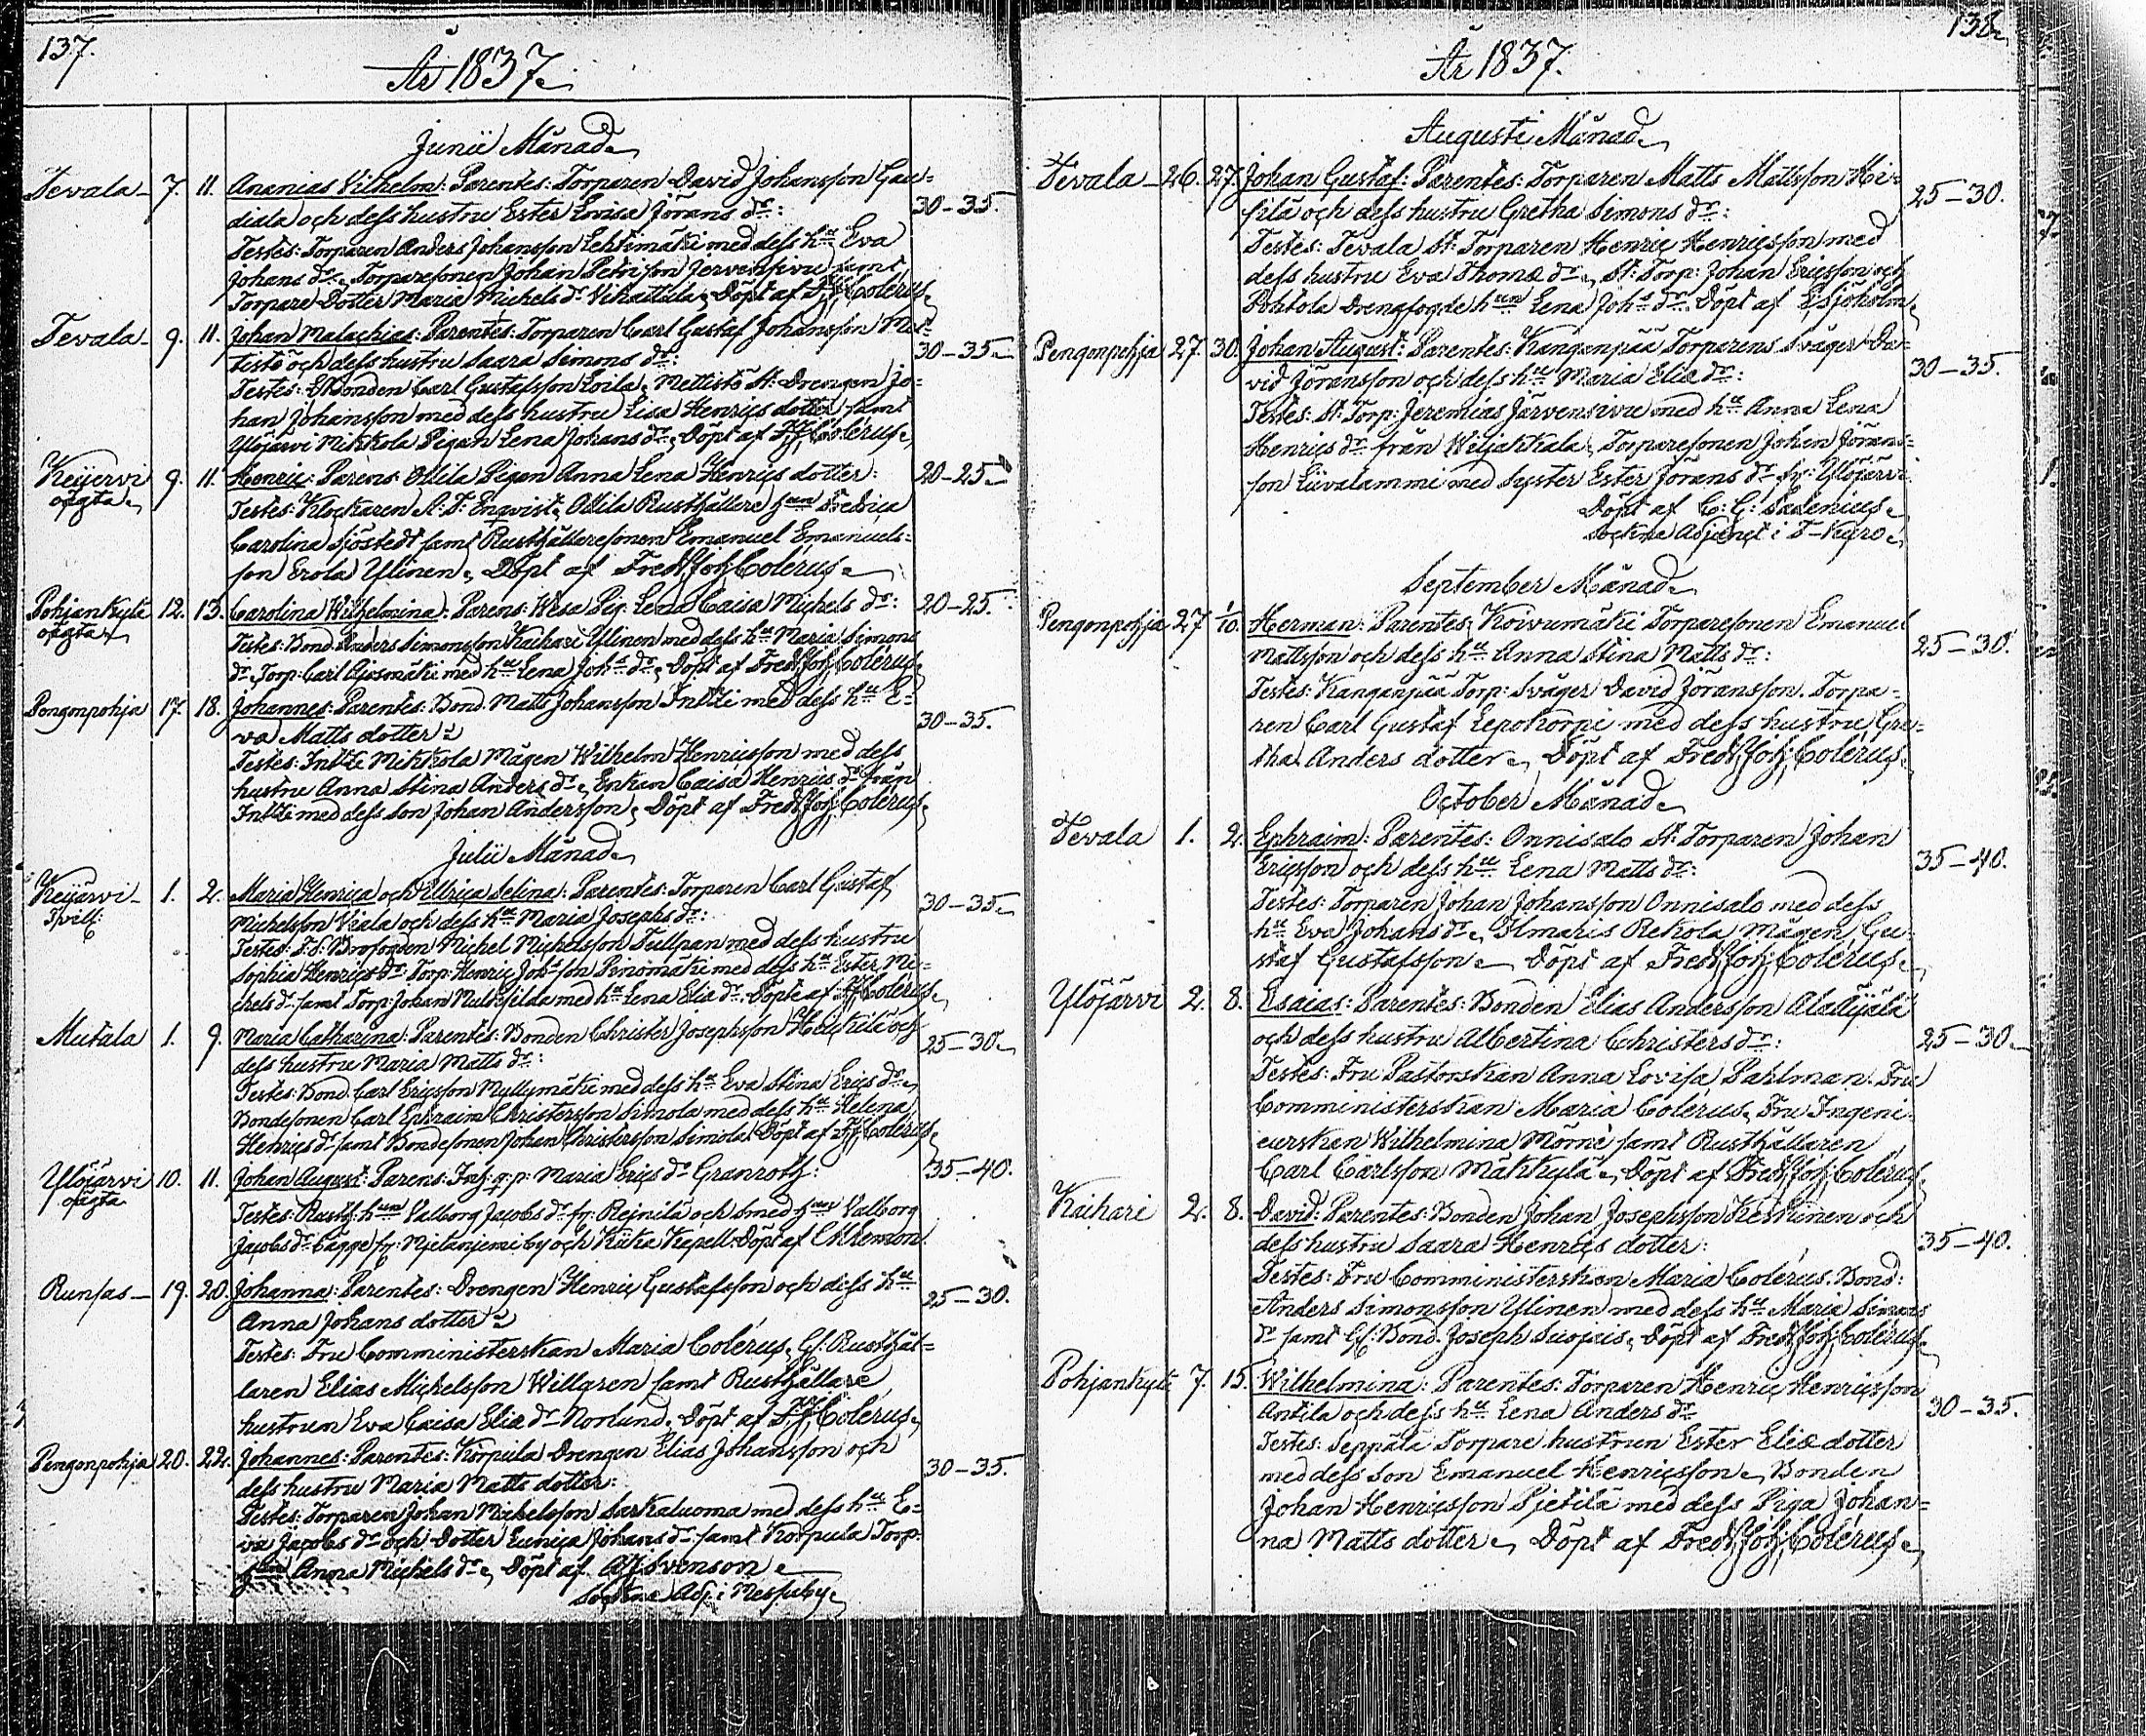 137.
År 1837.
Junii Månad
Tevala 7. 11. Ananias Vilhelm: Parentes: Torparen David Johansson Gau-
diala och dess hustru Ester Lovisa Jörans dr: 30-35
Testes: Torparen Anders Johansson Lehtimäki med dess hu Eva
Johans dr, Torparesonen Johan Petrisson Jervensivu samt
Torpare Dotter Maria Michels dr Vihattula, Döpt af F.J. Colérus.
Tevala 9. 11. Johan Malachias: Parentes: Torparen Carl Gustaf Johansson Met-
tistö och dess hustru Saara Simons dr: 30-35
Testes: Bonden Carl Gustafsson Loila, Mettistö St: Drengen Jo-
han Johansson med dess hustru Lisa Henrics dotter samt
Ylöjärvi Mikkola Pigan Lena Johans dr, Döpt af F.J. Colérus.
Keijervi oägta 9. 11. Henric: Parens: Ollila Pigan Anna Lena Henrics dotter: 20-25
Testes: Klockaren A. F. Enqvist, Ollila Rusthållare hun Fredrica
Carolina Sjöstedt samt Rusthållaresonen Emanuel Emanuels-
son Erola Ylinen, Döpt af Fredr. Joh. Colérus.
Pohjankylä oägta 12. 13. Carolina Wilhelmina: Parens: Wesa Pig. Lena Caisa Michels dr: 20-25.
Testes: Bond. Anders Simonsson Kaihari Ylinen med dess hu Maria Simons
dr, Torp: Carl Ajosmäki med hu Lena Johs dr, Döpt af Fredr. Joh. Colérus.
Pengonpohja 17. 18. Johannes: Parentes: Bond. Matts Johansson Inkki med dess hu E-
va Matts dotter: 30-35.
Testes: Inkki Mikkola Mågen Wilhelm Henricsson med dess
hustru Anna Stina Anders dr, Enkan Caisa Henrics dr från
Inkki med dess son Johan Andersson, Döpt af Fredr. Joh. Colérus.
Julii Månad
Keijärvi Tvill: 1. 2. Maria Henrica och Ulrica Selina: Parentes: Torparen Carl Gustaf
Michelsson Viala och dess hu Maria Josephs dr: 30-35
Testes: Brofogden Michel Michelsson Tullpan med dess hustru
Sophia Henrics dr, Torp: Henric Johsson Pinomäki med dess hu Ester Mi-
chels dr samt Torp: Johan med hu Lena Eliæ dr, Döpte af F.J. Colérus.
Mutala 1. 9. Maria Catharina: Parentes: Bonden Christer Josephsson Heickilä och
dess hustru Maria Matts dr: 25-30
Testes: Bond. Carl Ericsson Myllymäki med dess hu Eva Stina Erics dr,
Bondesonen Carl Ephraim Christersson Simola med dess hu Helena
Henrics dr samt Bondesonen Johan Christersson Simola, Döpt af F.J. Colérus.
Ylöjärvi oägta 10. 11. Johan August: Parens: Inh: q:p: Maria Erics dr Granroth: 35-40.
Testes: Rusth. hun Valborg Jacobs dr fr: Reinilä och Smed hun Valborg
Jacobs dr Bagge fr: Njetanjemi by och Kiika Kapell. Döpt af E H Remon
Runsas 19. 20. Johanna: Parentes: Drengen Henric Gustafsson och dess hu
Anna Johans dotter: 25-30.
Testes: Fru Comministerskan Maria Colérus, Gl: Rusthål-
laren Elias Michelsson Willgren samt Rusthållare
hustrun Eva Caisa Eliæ dr Norlund, Döpt af F.J. Colérus.
Pengonpohja 20. 22. Johannes: Parentes: Korpula Drengen Elias Johansson och
dess hustru Maria Matts dotter: 30-35.
Testes: Torparen Johan Michelsson Sarkaluoma med dess hu E-
va Jacobs dr och Dotter Eunica Johans dr samt Korpula Torp:
hun Anna Michels dr, Döpt af A J Svenson
Sockne Adj: i Messuby

138.
År 1837.
Augusti Månad
Tevala 26. 27. Johan Gustaf: Parentes: Torparen Matts Mattsson Hi-
silä och dess hustru Gretha Simons dr: 25-30.
Testes: Tevala St: Torparen Henric Henricsson med
dess hustru Eva Thomæ dr, St: Torp: Johan Ericsson och
Pohtola Drengfogde hun Lena Johs dr. Döpt af E Sjöholm
Pengonpohja 27. 30. Johan August: Parentes: Kanganpää Torparens Svåger Da-
vid Jöransson och dess hu Maria Eliæ dr: 30-35.
Testes: St: Torp: Jeremias Järvensivu med hu Anna Lena
Henrics dr från Wiljakkala, Torparesonen Johan Jörans-
son Liuvalammi med syster Ester Jörans dr fr: Ylöjärvi
Döpt af C: G: Salenius
Sockne Adjunct i T-Kyro
September Månad
Pengonpohja 27 1/10. Herman: Parentes, Koivumäki Torparesonen Emanuel
Mattsson och dess hu Anna Stina Matts dr: 25-30.
Testes: Kanganpää Torp: Svåger David Jöransson. Torpa-
ren Carl Gustaf Lepokorpi med dess hustru Gre-
tha Anders dotter, Döpt af Fredr. Joh. Colérus.
October Månad
Tevala 1. 2. Ephraim: Parentes: Onnisalo St: Torparen Johan
Ericsson och dess hu Lena Matts dr: 35-40.
Testes: Torparen Johan Johansson Onnisalo med dess
hu Eva Johans dr, Ilmaris Rekola Mågen Gu-
staf Gustafsson, Döpt af Fredr. Joh. Colérus.
Ylöjärvi 2. 8. Esaias: Parentes: Bonden Elias Andersson Aladijälä
och dess hustru Albertina Christers dr: 25-30
Testes: Fru Pastorskan Anna Lovisa Pahlman. Fru
Comministerskan Maria Colérus, Fru Ingeni-
eurskan Wilhelmina Mörne samt Rusthållaren
Carl Carlsson Mäkkylä, Döpt af Fredr. Joh. Colérus.
Kaihari 2. 8. David: Parentes: Bonden Johan Josephsson Keskinen och
dess hustru Saara Henrics dotter: 35-40.
Testes: Fru Comministerskan Maria Colérus. Bond:
Anders Simonsson Ylinen med dess hu Maria Simons
dr samt Gl: Bond. Joseph Suopais, Döpt af Fredr. Joh. Colérus.
Pohjankylä 7. 15. Wilhelmina: Parentes: Torparen Henric Henricsson
Antila och dess hu Lena Anders dr 30-35.
Testes: Seppälä Torpare hustrun Ester Eliæ dotter
med dess son Emanuel Henricsson, Bonden
Johan Henricsson Pietilä med dess Piga Johan-
na Matts dotter, Döpt af Fredr. Joh. Colérus.